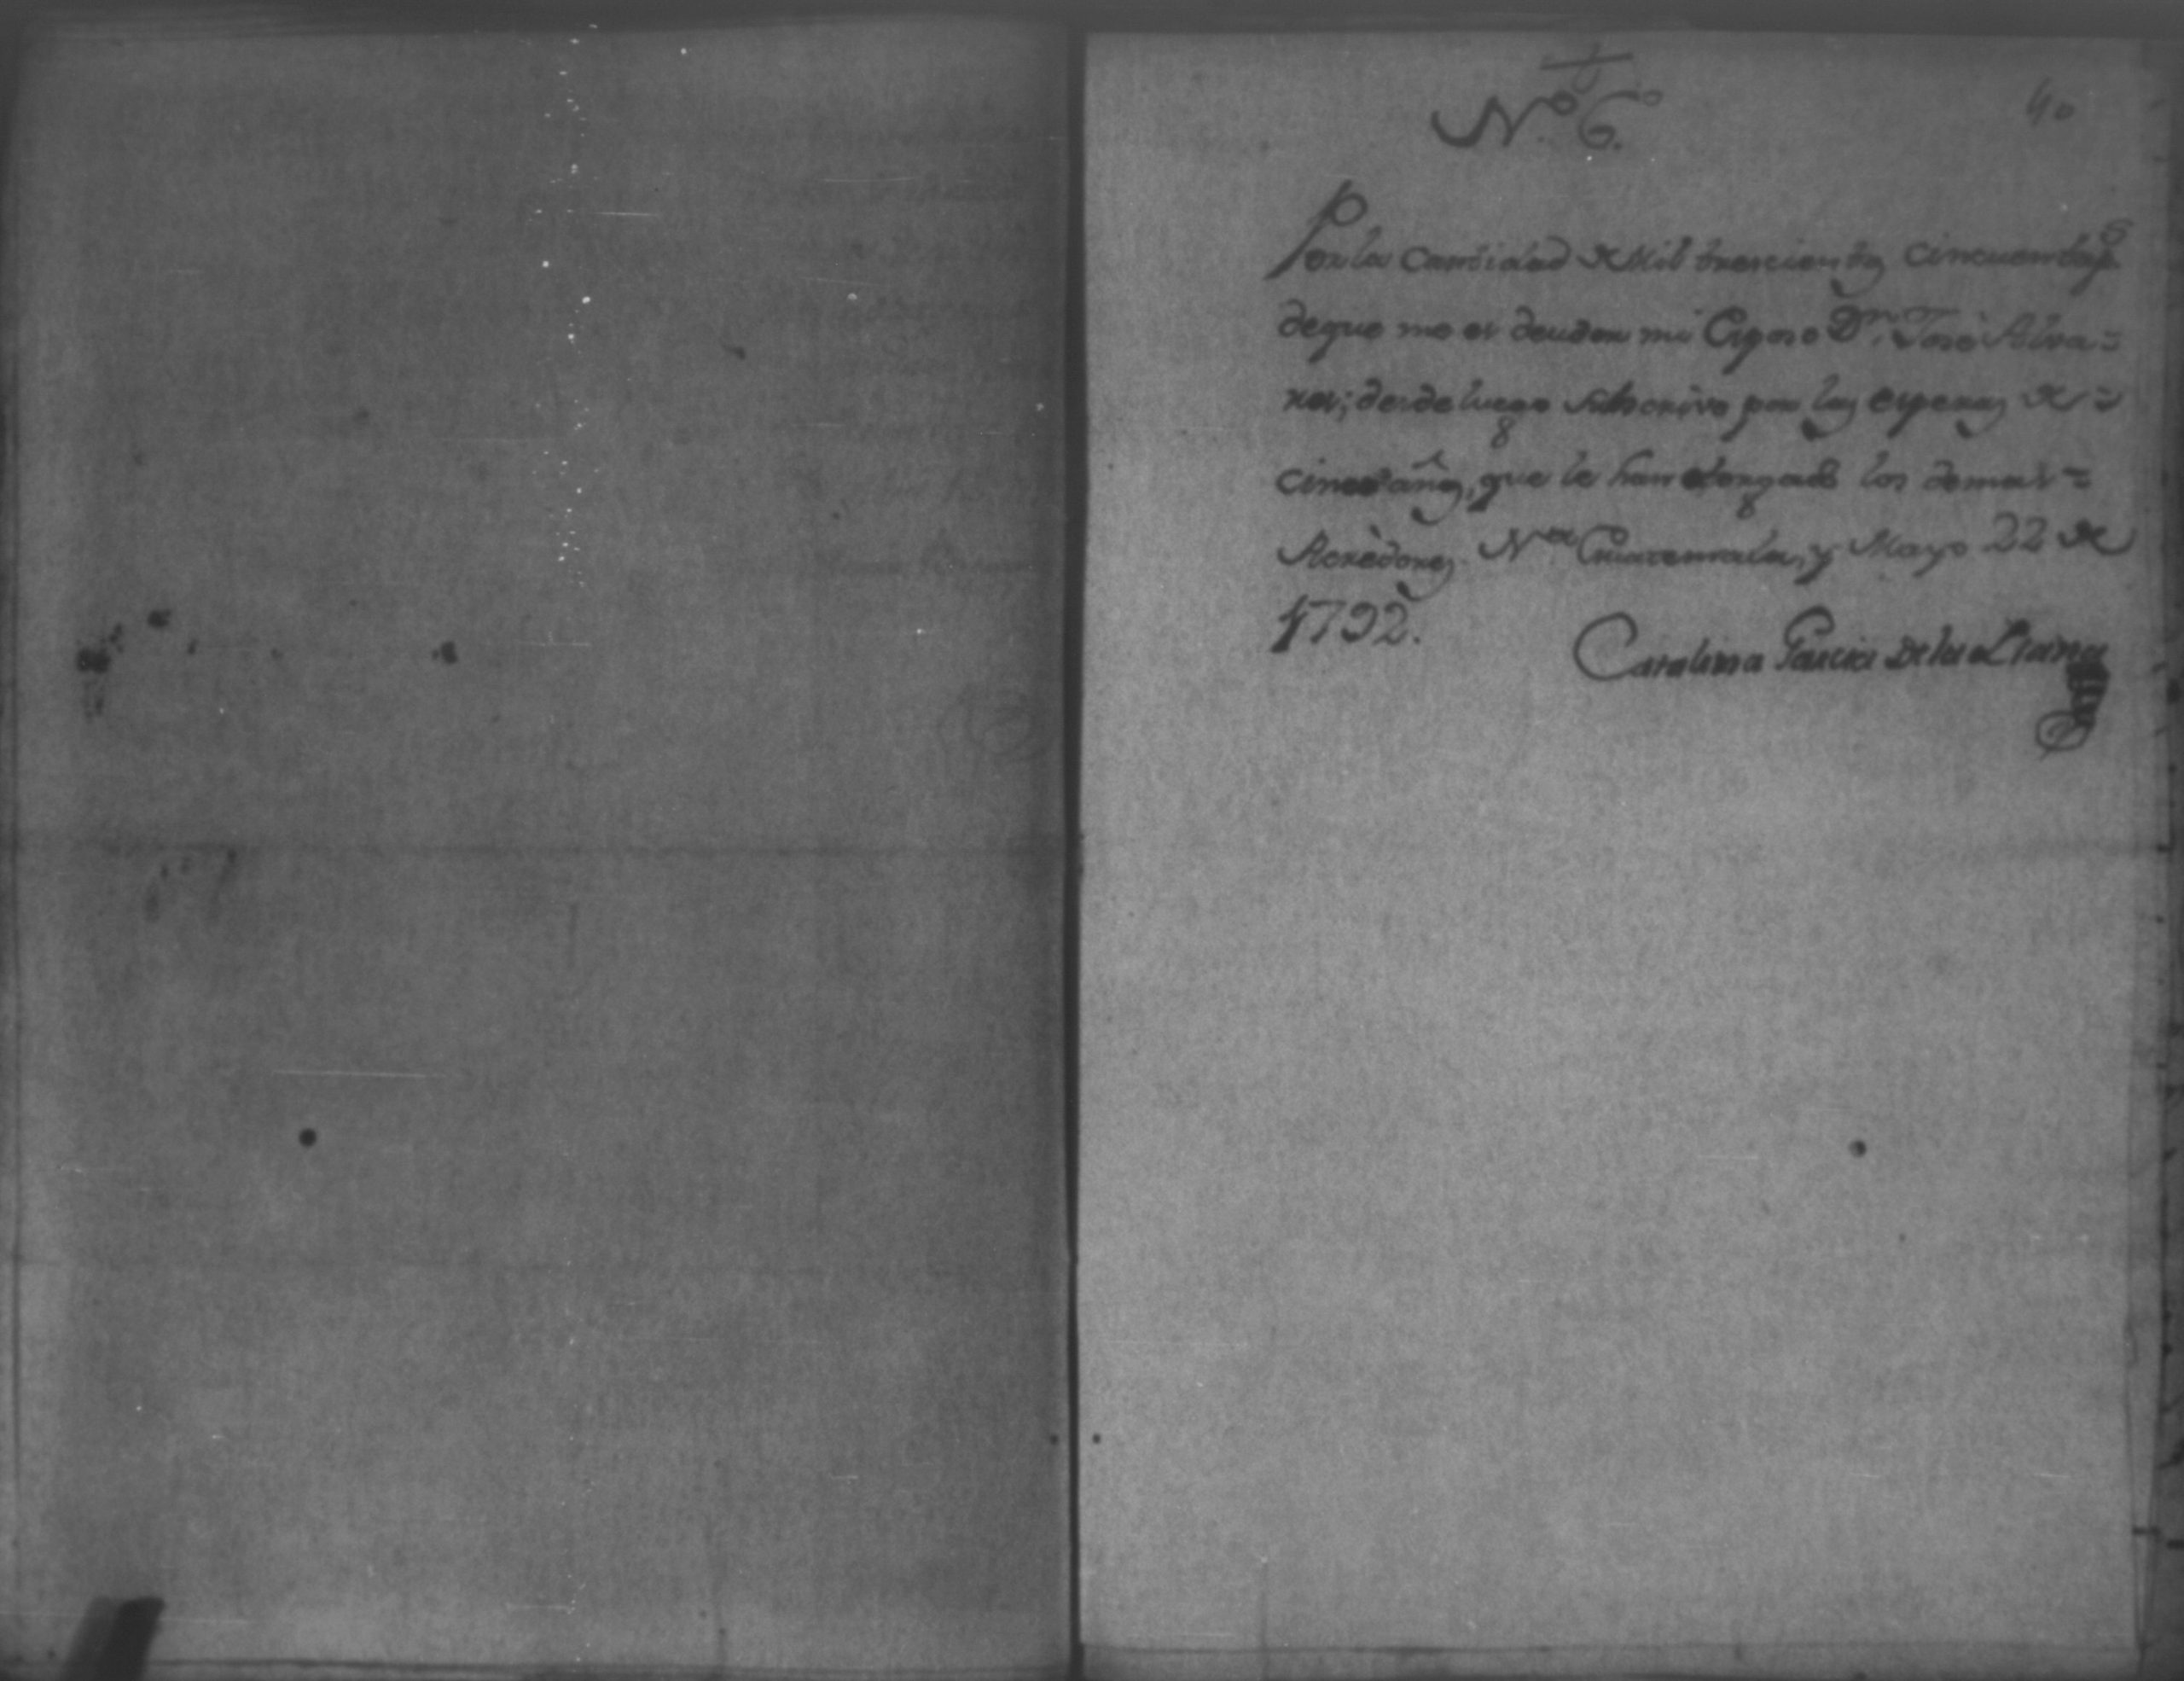 N.º 6.º
40
Por la cantidad de Mil trescientos cincuenta p.s
de que me es deudor mi Esposo D.n José Alva=
res; desde luego subscrivo por las esperas de =
cinco años, que le han otorgado los demas =
Acrèdores. N.a Guatemala, y Mayo 22 de
1792.
Catalina Garcia De la